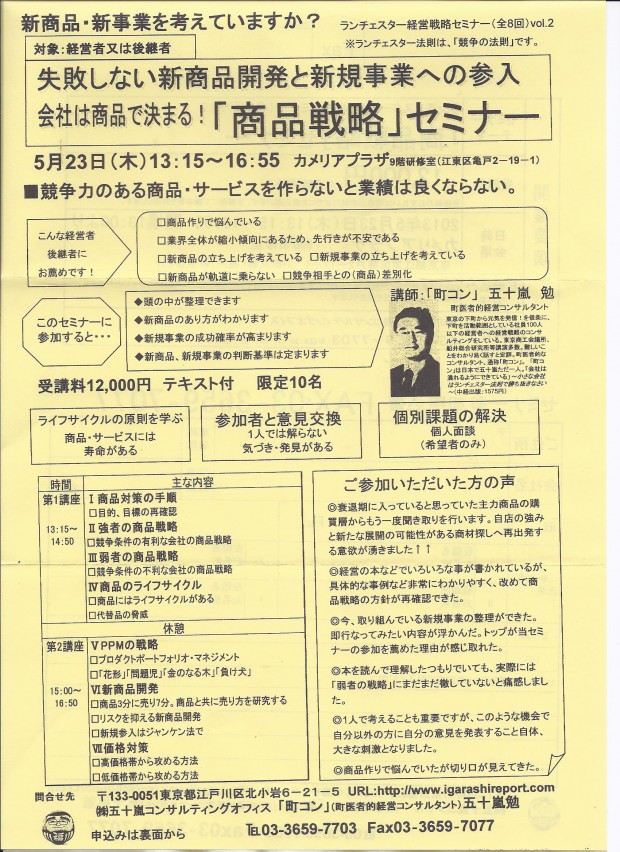 新商品・新事業を考えていますか?
ランチェスター経営戦略セミナー(全8回)vol.2
対象:経営者又は後継者
※ランチェスター法則は、「競争の法則」です。
失敗しない新商品開発と新規事業への参入
会社は商品で決まる!「商品戦略」セミナー
5月23日(木)13:15～16:55 カメリアプラザ9階研修室(江東区亀戸2-19-1)
■競争力のある商品・サービスを作らないと業績は良くならない。
こんな経営者
後継者に
お薦めです!
□商品作りで悩んでいる
□業界全体が縮小傾向にあるため、先行きが不安である
□新商品の立ち上げを考えている □新規事業の立ち上げを考えている
□新商品が軌道に乗らない □競争相手との(商品)差別化
このセミナーに
参加すると・・・
◆頭の中が整理できます
◆新商品のあり方がわかります
◆新規事業の成功確率が高まります
◆新商品、新規事業の判断基準が定まります
講師:「町コン」 五十嵐 勉
町医者的経営コンサルタント
東京の下町から元気を発信!を信条に、
下町を活動範囲としている社員100人
以下の経営者への経営戦略のコンサ
ルティングをしている。東京商工会議所、
船井総合研究所等講演多数。難しいこ
とをわかり易く話すと定評。町医者的な
コンサルタント、通称「町コン」。「町コ
ン」は日本で五十嵐ただ一人。「会社は
潰れるようにできている」～小さな会社
はランチェスター法則で勝ち抜きなさい
～(中経出版:1575円)
受講料12,000円 テキスト付 限定10名
ライフサイクルの原則を学ぶ
商品・サービスには
寿命がある
参加者と意見交換
1人では解らない
気づき・発見がある
個別課題の解決
個人面談
(希望者のみ)
時間 主な内容
第1講座
13:15～
14:50
Ⅰ商品対策の手順
□目的、目標の再確認
Ⅱ強者の商品戦略
□競争条件の有利な会社の商品戦略
Ⅲ弱者の商品戦略
□競争条件の不利な会社の商品戦略
Ⅳ商品のライフサイクル
□商品にはライフサイクルがある
□代替品の脅威
休憩
第2講座
15:00～
16:50
ⅤPPMの戦略
□プロダクトポートフォリオ・マネジメント
□「花形」「問題児」「金のなる木」「負け犬」
Ⅵ新商品開発
□商品3分に売り7分。商品と共に売り方を研究する
□リスクを抑える新商品開発
□新規参入はジャンケン法で
Ⅶ価格対策
□高価格帯から攻める方法
□低価格帯から攻める方法
ご参加いただいた方の声
◎衰退期に入っていると思っていた主力商品の購
買層からもう一度聞き取りを行います。自店の強み
と新たな展開の可能性がある商材探しへ再出発す
る意欲が湧きました↑↑
◎経営の本などでいろいろな事が書かれているが、
具体的な事例など非常にわかりやすく、改めて商
品戦略の方針が再確認できた。
◎今、取り組んでいる新規事業の整理ができた。
即行なってみたい内容が浮かんだ。トップが当セミ
ナーの参加を薦めた理由が感じ取れた。
◎本を読んで理解したつもりでいても、実際には
「弱者の戦略」にまだまだ徹していないと痛感しま
した。
◎1人で考えることも重要ですが、このような機会で
自分以外の方に自分の意見を発表すること自体、
大きな刺激となりました。
◎商品作りで悩んでいたが切り口が見えてきた。
問合せ先
〒133-0051東京都江戸川区北小岩6-21-5 URL:http://www.igarashireport.com
㈱五十嵐コンサルティングオフィス 「町コン」(町医者的経営コンサルタント)五十嵐勉
申込みは裏面から
℡03-3659-7703 Fax03-3659-7077